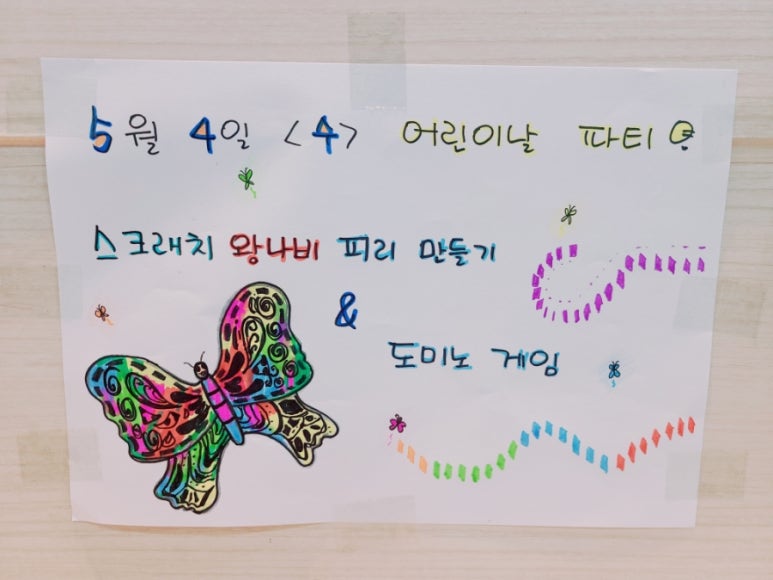 5월 4일 <4> 어린이날 파티
스크래치 왕나비 피리 만들기
&
도미노 게임